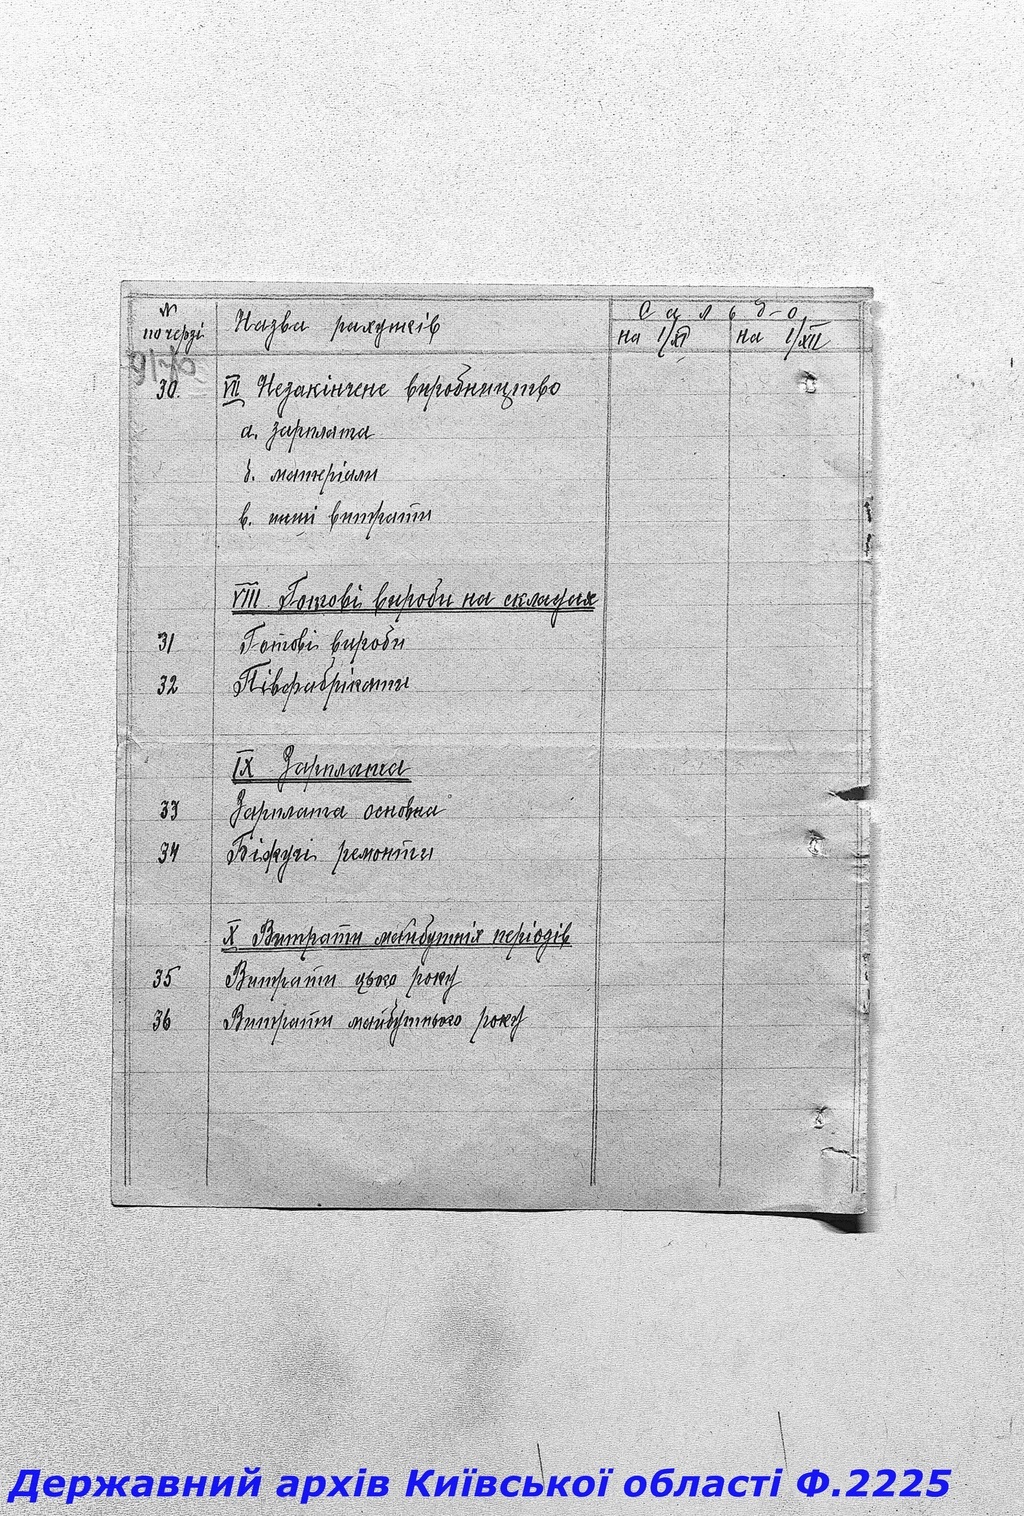 № по черзі Назва рахунків Сальдо
на 1/XI на 1/XII
30. VII Незакінчене виробництво
а. зарплата
б. матеріали
в. инші витрати
VIII Готові вироби на складах
31 Готові вироби
32 Півфабрікати
IX Зарплата
33 Зарплата основна
34 Біжучі ремонти
X Витрати майбутніх періодів
35 Витрати цього року
36 Витрати майбутнього року
Державний архів Київської області Ф.2225